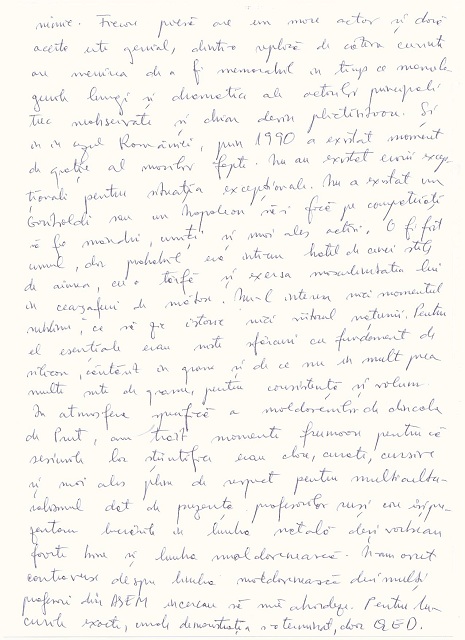 nimic. Fiecare piesă are un mare actor și dacă
acesta este genial, dintr-o replică de câteva cuvinte
are menirea de a fi memorabil în timp ce monolo-
gurile lungi și dramatice ale actorilor principali
trec neobservate și chiar devin plictisitoare. Și
în cazul României, prin 1990 a existat moment
de grație al marilor fapte. Nu au existat eroii excep-
ționali pentru situația excepțională. Nu a existat un
Garibaldi sau un Napoleon să-i facă pe compatrioți
să fie mândri, uniți și mai ales activi. O fi fost
unul, dar probabil era într-un hotel de cinci stele
de aiurea, cu o târfă și exersa masculinitatea lui
în cearșafuri de mătase. Nu-l interesa nici momentul
sublim, ce să fie istorie nici viitorul națiunii. Pentru
el esențiale erau niște sfârcuri cu fundament de
silicon, cântărit în grame și de ce nu în mult prea
multe sute de grame, pentru consistență și volum.
În atmosfera specifică a moldovenilor de dincolo
de Prut, am trăit momente frumoase pentru că
sesiunile lor științifice erau clare, curate, cursive
și mai ales pline de respect pentru multicultu-
ralismul dat de prezența profesorilor ruși care își pre-
zentau lucrările în limba natală deși vorbeau
foarte bine și limba moldovenească. N-am avut
controverse despre limba moldovenească deși mulți
profesori din ASEM încercau să mă abordeze. Pentru lu-
crurile exacte, unde demonstrația s-a terminat, doar QED.